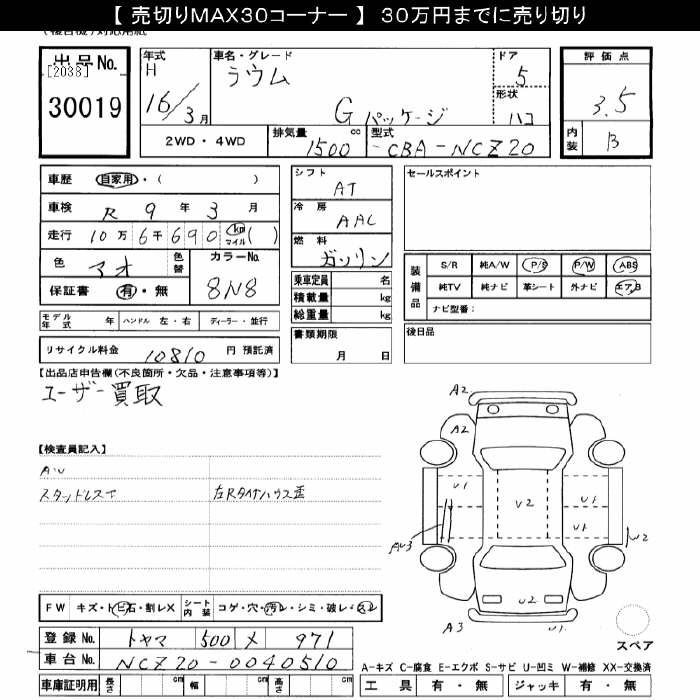 【 売切りMAX30コーナー 】 30万円までに売り切り
出品No.
[2038]
30019
年式
H
16/3月
車名・グレード
ラウム
Gパッケージ
ドア
5
形状
ハコ
評価点
3.5
内装
B
2WD・4WD
排気量
1500 cc
型式
CBA-NCZ20
車歴 自家用・( )
車検 R 9 年 3 月
走行 10万6千690 km マイル ( )
色 アオ 色替
カラーNo.
8N8
保証書 有・無
モデル年式 年 ハンドル 左・右 ディーラー・並行
リサイクル料金 10810 円 預託済
シフト
AT
冷房
AAC
燃料
ガソリン
乗車定員 名
積載量 kg
総重量 kg
書類期限
月 日
セールスポイント
装備品
S/R 純A/W P/S P/W ABS
純TV 純ナビ 革シート 外ナビ エアB
ナビ型番:
後日品
【出品店申告欄(不良箇所・欠品・注意事項等)】
ユーザー買取
【検査員記入】
AU
スタッドレス
左Rタイヤハウス歪
A2
A2
U1
U2
U1
U1
U2
AU3
U2
A3
U1
スペア
FW キズ・トビ石・割レX シート内装 コゲ・穴・汚レ・シミ・破レ・スレ
登録No. トヤマ 500 メ 971
車台No. NCZ20-0040510
車庫証明用 長さ cm 幅 cm 高さ cm
A-キズ C-腐食 E-エクボ S-サビ U-凹ミ W-補修 XX-交換済
工具 有・無 ジャッキ 有・無